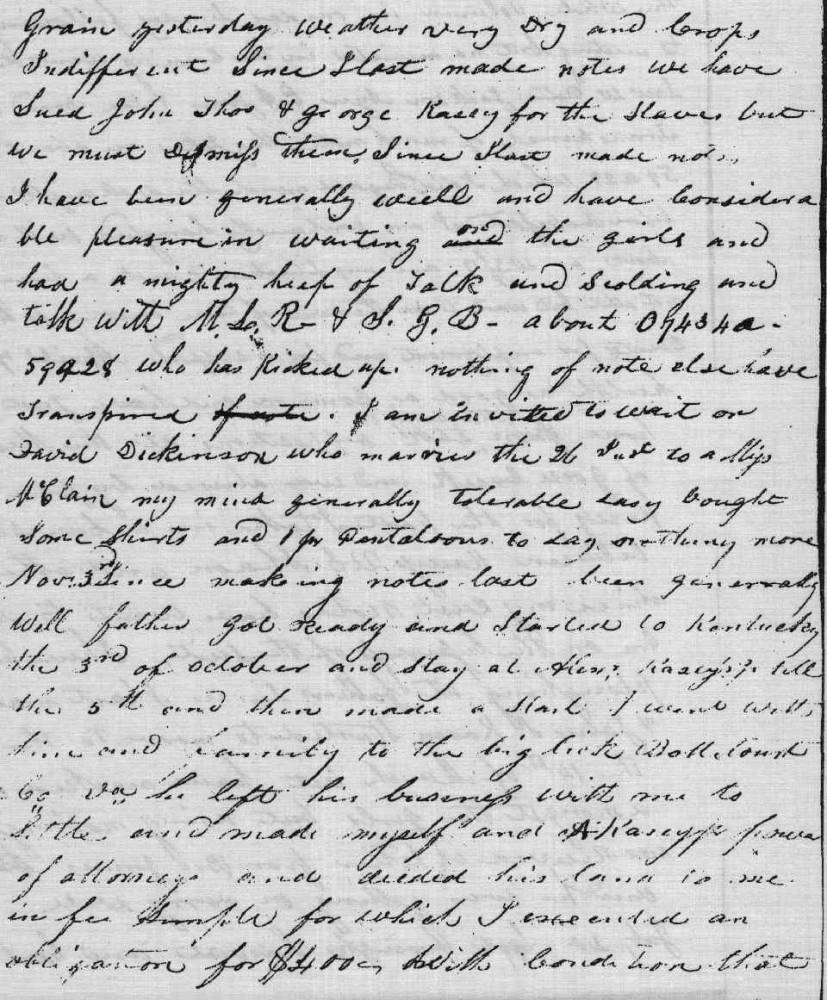 Grain yesterday weather very Dry and Crops
Indifferent Since I last made notes we have
Sued John Thos & george Kasey for the Slaves but
we must Dismiss them. Since I last made notes
I have been generally well and have Considera
ble pleasure in waiting on the girls and
had a mighty heap of Talk and Scolding and
talk with M. L. R- & S. G. B- about 07434a-
59428 who has Kicked up. nothing of note else have
Transpired of note. I am invited to wait on
David Dickinson who marries the 26 Inst to a Miss
McClain my mind generally tolerable easy bought
Some Shirts and 1 pr Pantaloons to day nothing more
Nov. 3rd Since making notes last been generally
well father got ready and Started to Kentucky
the 3rd of October and Stay at Alex. Kasey's till
the 5th and then made a Start I went with
him and family to the big lick Bottetourt
Co Va he left his business with me to
Settle and made myself and A Kasey power
of attorneys and deeded his land to me
in fee Simple for which I executed an
obligation for $1400 With Condition that